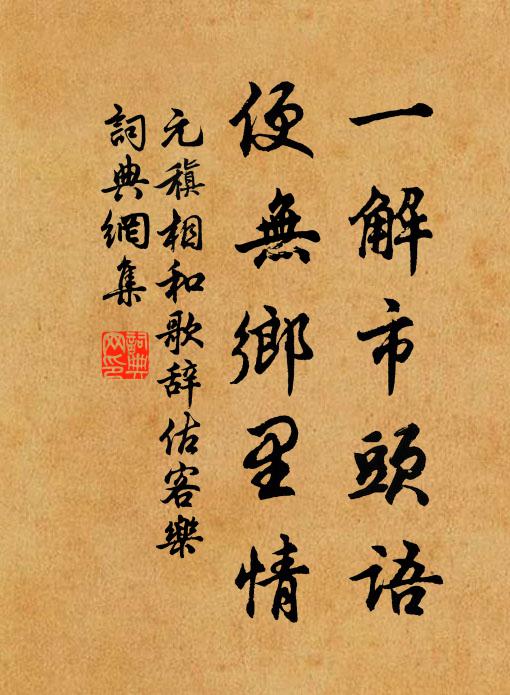 一解市頭語
便無鄉里情
元稹相和歌辞估客樂
詞典網集
詞典网印